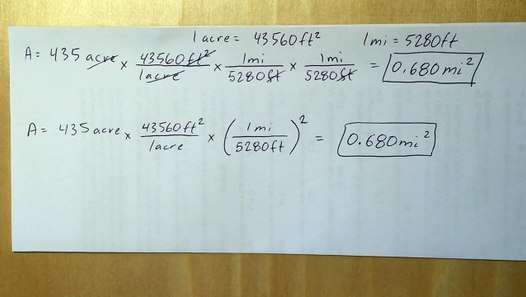 1 acre = 43560 ft² 1 mi = 5280 ft
A = 435 acre × 43560 ft² / 1 acre × 1 mi / 5280 ft × 1 mi / 5280 ft = 0.680 mi²
A = 435 acre × 43560 ft² / 1 acre × (1 mi / 5280 ft)² = 0.680 mi²